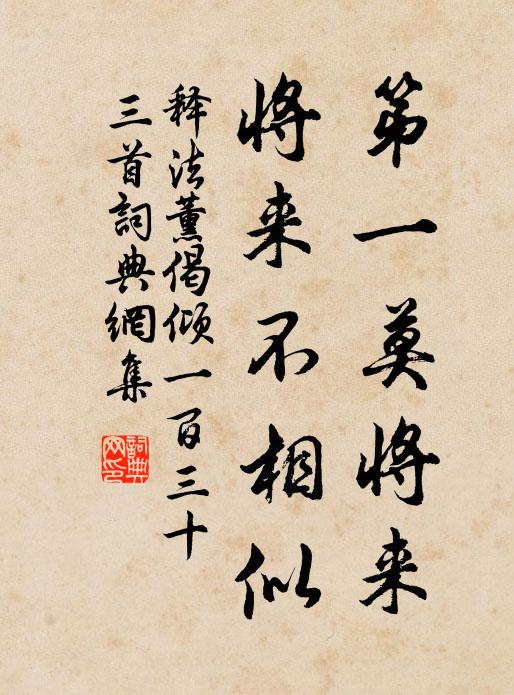 第一莫将来
将来不相似
释法薰偈倾一百三十
三首詞典網集
詞典网印